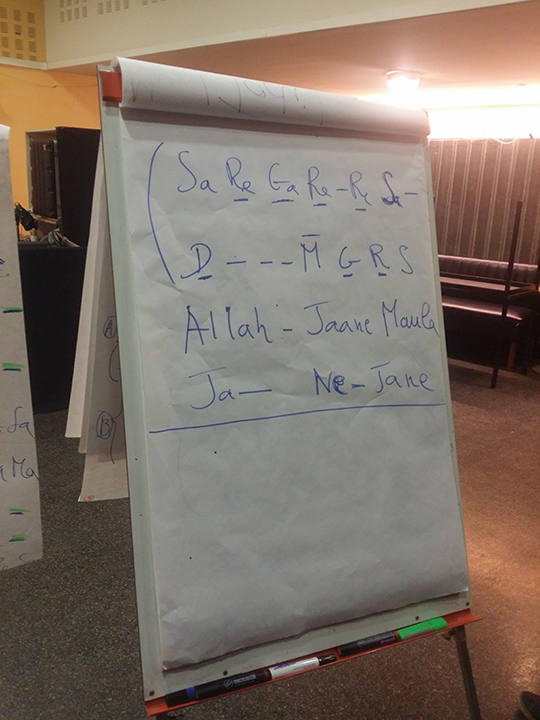 ( Sa R̲e̲ G̲a̲ R̲e̲ – R̲e̲ Sa –
D̲ – – – M̅ G̲ R̲ S
Allah – Jaane Maula
Ja — Ne – Jane
A
B
Ma